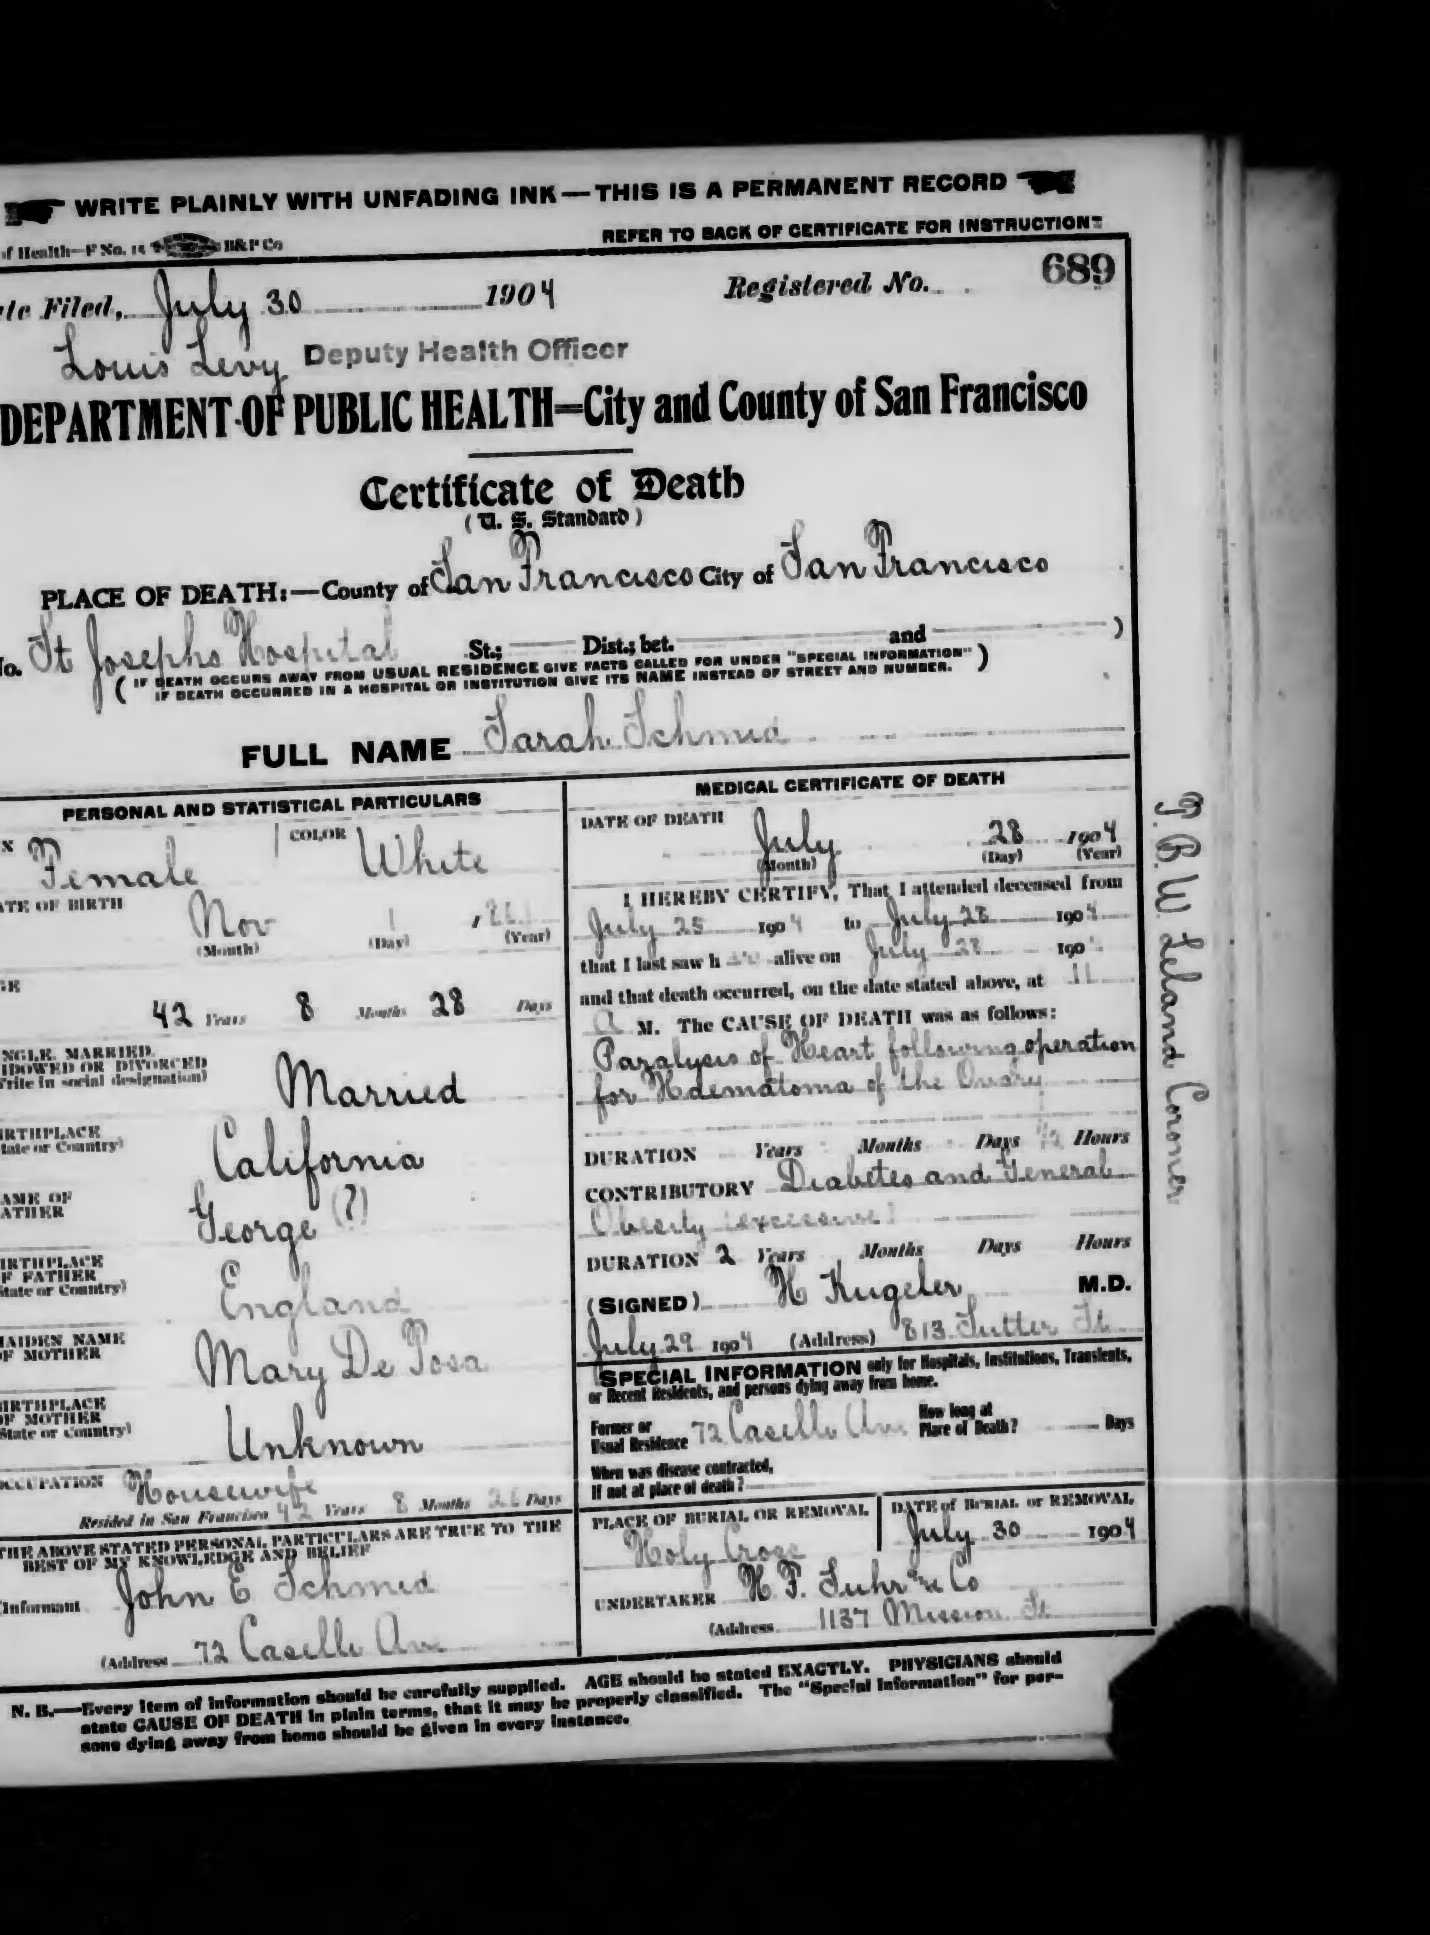 WRITE PLAINLY WITH UNFADING INK—THIS IS A PERMANENT RECORD
of Health—F No. 15 H&P Co
REFER TO BACK OF CERTIFICATE FOR INSTRUCTION
te Filed, July 30 1904 Registered No. 689
Louis Levy Deputy Health Officer
DEPARTMENT OF PUBLIC HEALTH=City and County of San Francisco
Certificate of Death
(U. S. Standard)
PLACE OF DEATH:—County of San Francisco City of San Francisco
No. St Josephs Hospital St.; Dist.; bet. and )
( IF DEATH OCCURS AWAY FROM USUAL RESIDENCE GIVE FACTS CALLED FOR UNDER "SPECIAL INFORMATION" )
IF DEATH OCCURRED IN A HOSPITAL OR INSTITUTION GIVE ITS NAME INSTEAD OF STREET AND NUMBER.
FULL NAME Sarah Schmid
PERSONAL AND STATISTICAL PARTICULARS
X Female COLOR White
ATE OF BIRTH
Nov 1
(Month) (Day) (Year)
GE
42 Years 8 Months 28 Days
NGLE, MARRIED,
IDOWED OR DIVORCED
rite in social designation)
Married
IRTHPLACE
tate or Country)
California
AME OF
ATHER
George (?)
IRTHPLACE
F FATHER
State or Country)
England
MAIDEN NAME
OF MOTHER
Mary De Posa
BIRTHPLACE
OF MOTHER
State or Country)
Unknown
OCCUPATION Housewife
Resided in San Francisco 42 Years 8 Months Days
THE ABOVE STATED PERSONAL PARTICULARS ARE TRUE TO THE
BEST OF MY KNOWLEDGE AND BELIEF
Informant John E Schmid
(Address 72 Caselli Ave
MEDICAL CERTIFICATE OF DEATH
DATE OF DEATH
July 28 1904
(Month) (Day) (Year)
I HEREBY CERTIFY, That I attended deceased from
July 25 1904 to July 28 1904
that I last saw h alive on July 28 190
and that death occurred, on the date stated above, at 11
A M. The CAUSE OF DEATH was as follows:
Paralysis of Heart following operation
for Hdematoma of the Ovary
DURATION Years Months Days Hours
CONTRIBUTORY Diabetes and General
Obesity (excessive)
DURATION 2 Years Months Days Hours
(SIGNED) H Kugeler M.D.
July 29 1904 (Address) 813 Sutter St
SPECIAL INFORMATION only for Hospitals, Institutions, Transients,
or Recent Residents, and persons dying away from home.
Former or
Usual Residence 72 Caselli Ave
How long at
Place of Death? Days
When was disease contracted,
If not at place of death?
PLACE OF BURIAL OR REMOVAL
Holy Cross
DATE of BURIAL or REMOVAL
July 30 1904
UNDERTAKER H. F. Suhr & Co
(Address 1137 Mission St
N. B.—Every item of information should be carefully supplied. AGE should be stated EXACTLY. PHYSICIANS should
state CAUSE OF DEATH in plain terms, that it may be properly classified. The "Special Information" for per-
sons dying away from home should be given in every instance.
T. B. W. Leland Coroner